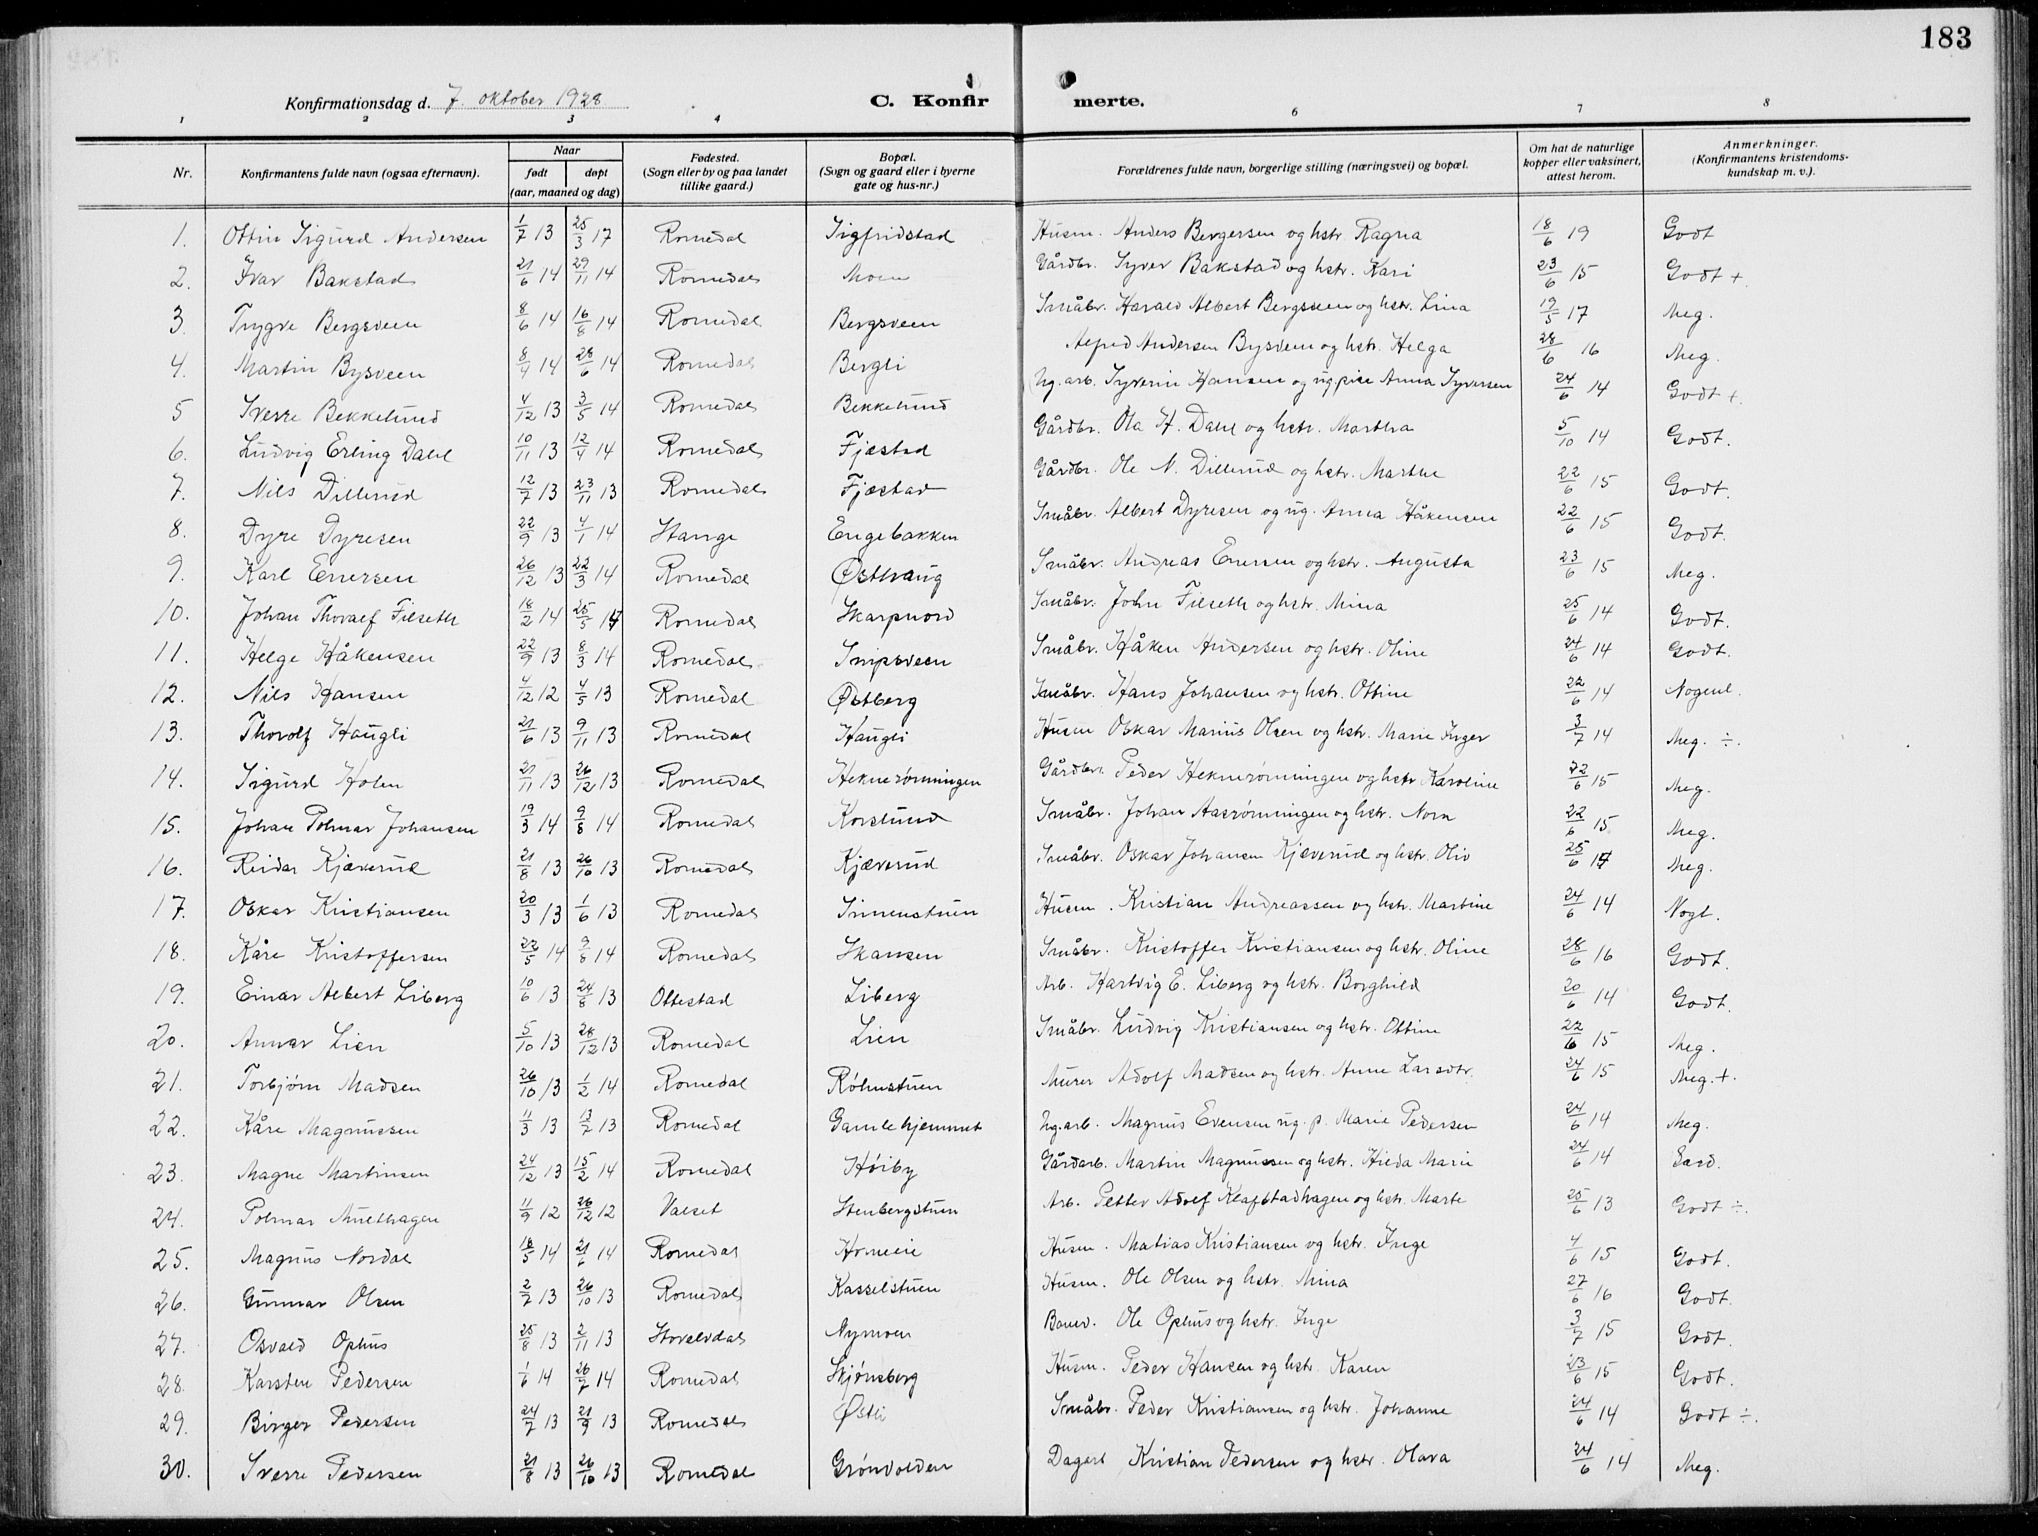 183
Konfirmationsdag d. 7. oktober 1928
C. Konfirmerte.
1 2 3 4 6 7 8
Nr. | Konfirmantens fulde navn (ogsaa efternavn). | Naar født døpt (aar, maaned og dag) | Fødested. (Sogn eller by og paa landet tillike gaard.) | Bopæl. (Sogn og gaard eller i byerne gate og hus-nr.) | Forældrenes fulde navn, borgerlige stilling (næringsvei) og bopæl. | Om hat de naturlige kopper eller vaksinert, attest herom. | Anmerkninger. (Konfirmantens kristendoms-kundskap m. v.).
1. Ottin Sigurd Andersen 1/7 13 25/3 17 Romedal Sigfridstad Husm. Anders Bergersen og hstr. Ragna 18/6 19 Godt
2. Ivar Bakstad 21/6 14 29/11 14 Romedal Moen Gårdbr. Syver Bakstad og hstr. Kari 23/6 15 Godt +
3. Trygve Bergsveen 8/6 14 16/8 14 Romedal Bergsveen Småbr. Harald Albert Bergsveen og hstr. Lina 19/5 17 Meg.
4. Martin Bysveen 8/4 14 28/6 14 Romedal Bergli Alfred Andersen Bysveen og hstr. Helga 28/6 16 Meg.
5 Sverre Bekkelund 4/12 13 3/5 14 Romedal Bekkelund Ug. arb. Syverin Hansen og ug pike Anna Syversen 24/6 14 Godt +.
6. Ludvig Erling Dahl 10/11 13 12/4 14 Romedal Fjæstad Gårdbr. Ola H. Dahl og hstr. Martha 5/10 14 Godt.
7. Nils Dillerud 12/7 13 23/11 13 Romedal Fjæstad Gårdbr. Ole N. Dillerud og hstr. Marthe 22/6 15 Godt.
8. Dyre Dyresen 22/9 13 4/1 14 Stange Engebakken Småbr. Albert Dyresen og ug. Anna Håkensen 22/6 15 Godt.
9. Karl Enersen 26/12 13 22/3 14 Romedal Østhaug Småbr. Andreas Enersen og hstr. Augusta 23/6 15 Meg.
10. Johan Thoralf Filseth 18/2 14 25/5 14 Romedal Skarpnord Småbr. John Filseth og hstr. Mina 25/6 14 Godt.
11. Helge Håkensen 22/9 13 8/3 14 Romedal Snipsveen Småbr. Håken Andersen og hstr. Oline 24/6 14 Godt.
12. Nils Hansen 4/12 12 4/5 13 Romedal Østberg Småbr. Hans Johansen og hstr. Ottine 22/6 14 Nogenl.
13. Thorolf Haugli 21/6 13 9/11 13 Romedal Haugli Husm Oskar Marius Olsen og hstr. Marie Inger 3/7 14 Meg. ÷.
14. Sigurd Holen 21/11 13 26/12 13 Romedal Heknerønningen Gårdbr. Peder Heknerønningen og hstr Karoline 22/6 15 Meg.
15. Johan Polmar Johansen 19/3 14 9/8 14 Romedal Korslund Småbr. Johan Aasrønningen og hstr. Nora 22/6 15 Meg.
16. Reidar Kjæverud 21/8 13 26/10 13 Romedal Kjæverud Småbr. Oskar Johansen Kjæverud og hstr. Oliv 25/6 14 Meg.
17. Oskar Kristiansen 20/3 13 1/6 13 Romedal Simenstuen Husm. Kristian Andreassen og hstr. Martine 24/6 14 Nogl.
18. Kåre Kristoffersen 22/5 14 9/8 14 Romedal Skansen Småbr. Kristoffer Kristiansen og hstr. Oline 28/6 16 Godt.
19. Einar Albert Liberg 10/6 13 24/8 13 Ottestad Liberg Arb. Hartvig E. Liberg og hstr. Borghild 20/6 14 Godt.
20. Annar Lien 5/10 13 28/12 13 Romedal Lien Småbr. Ludvig Kristiansen og hstr. Ottine 22/6 15 Meg.
21. Torbjørn Madsen 26/10 13 1/2 14 Romedal Røhnstuen Murer Adolf Madsen og hstr. Anne Larsdtr. 24/6 15 Meg. +.
22. Kåre Magnussen 11/3 13 13/7 13 Romedal Gamlehjemmet Ug. arb. Magnus Evensen ug. p. Marie Pedersen 24/6 14 Meg.
23. Magne Martinsen 24/12 13 15/2 14 Romedal Høiby Gårdarb. Martin Magnussen og hstr. Hilda Marie 24/6 14
24. Polmar Multhagen 11/9 12 26/12 12 Valset Stenbergstuen Arb. Petter Adolf Klafstadhagen og hstr. Marte 25/6 13 Godt ÷.
25. Magnus Nordal 18/5 14 21/6 14 Romedal Horneie Husm. Matias Kristiansen og hstr. Inge 4/6 15 Godt.
26. Gunnar Olsen 2/7 13 26/10 13 Romedal Kasselstuen Husm. Ole Olsen og hstr. Mina 27/6 16 Godt.
27. Osvald Ophus 25/8 13 2/11 13 Storelvdal Nymoen Banev. Ole Ophus og hstr. Inge 3/7 15 Godt.
28. Karsten Pedersen 1/6 14 26/7 14 Romedal Skjønsberg Husm. Peder Hansen og hstr. Karen 23/6 15 Godt.
29. Birger Pedersen 24/7 13 21/9 13 Romedal Østli Småbr. Peder Kristiansen og hstr. Johanne 24/6 14 Godt ÷.
30. Sverre Pedersen 21/8 13 26/10 13 Romedal Grønvolden Dagarb Kristian Pedersen og hstr. Olava 24/6 14 Meg.